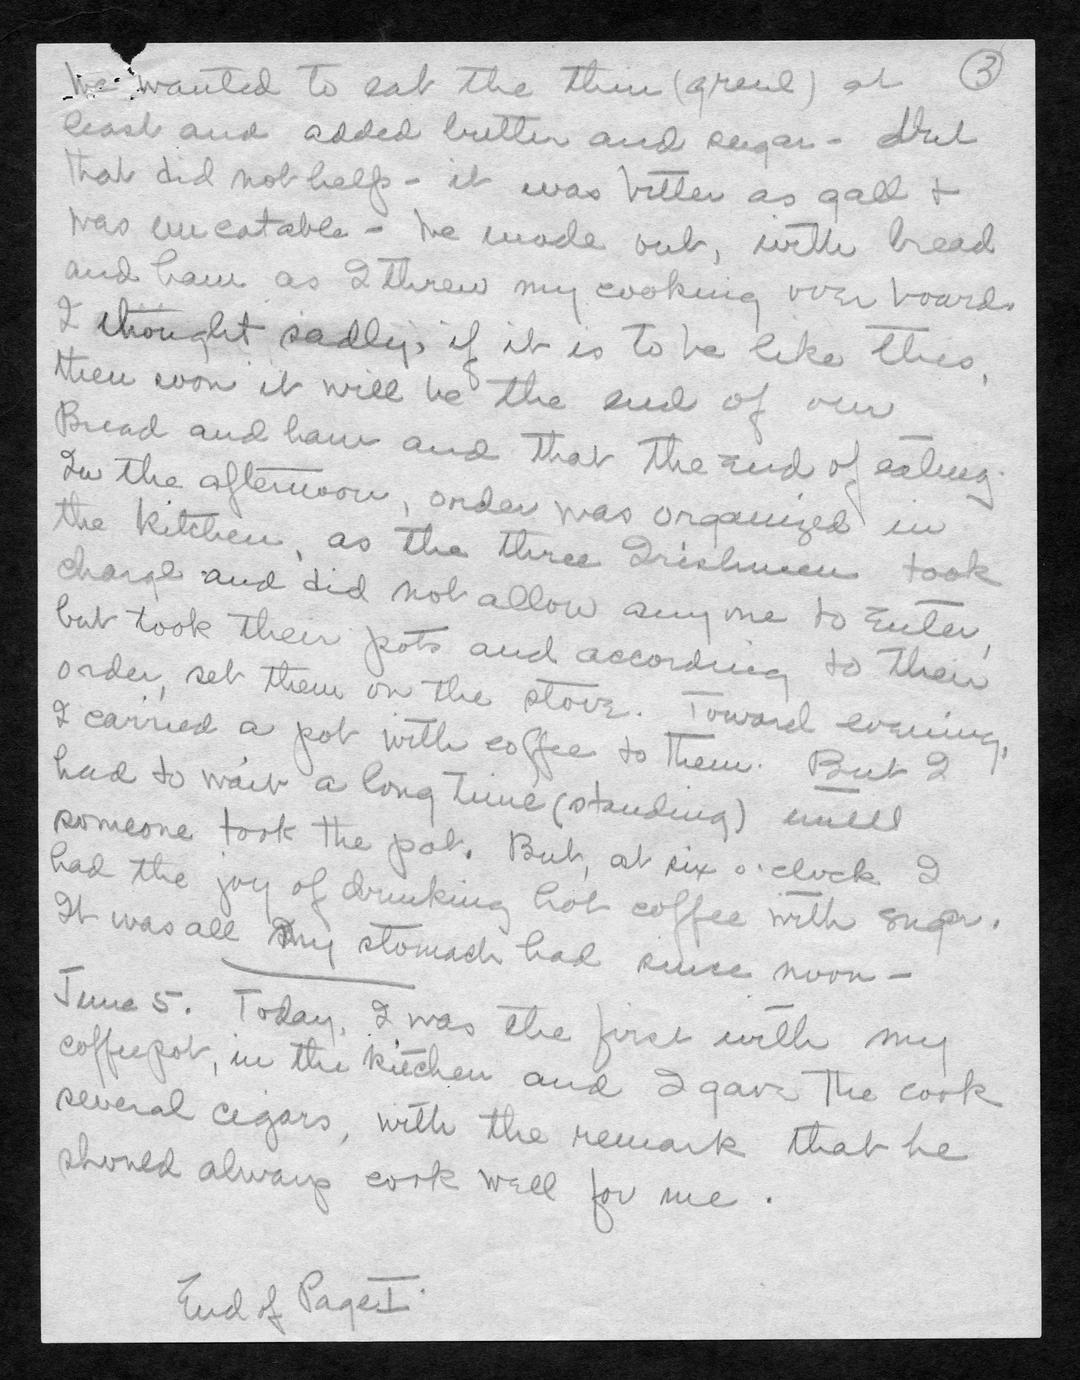 3
We wanted to eat the thin (gruel) at
least and added butter and sugar - But
that did not help - it was bitter as gall +
was uneatable - We made out, with bread
and ham as I threw my cooking over board.
I thought sadly, if it is to be like this,
then soon it will be the end of our
Bread and ham and that the End of eating.
In the afternoon, order was organized in
the kitchen, as the three Irishmen took
charge and did not allow anyone to Enter,
but took their pots and according to their
order, set them on the stove. Toward evening,
I carried a pot with coffee to them. But I
had to wait a long time (standing) until
someone took the pot. But, at six o'clock I
had the joy of drinking hot coffee with sugar.
It was all my stomach had since noon -
June 5. Today, I was the first with my
coffeepot, in the kitchen and I gave the cook
several cigars, with the remark that he
should always cook well for me.
End of Page I.